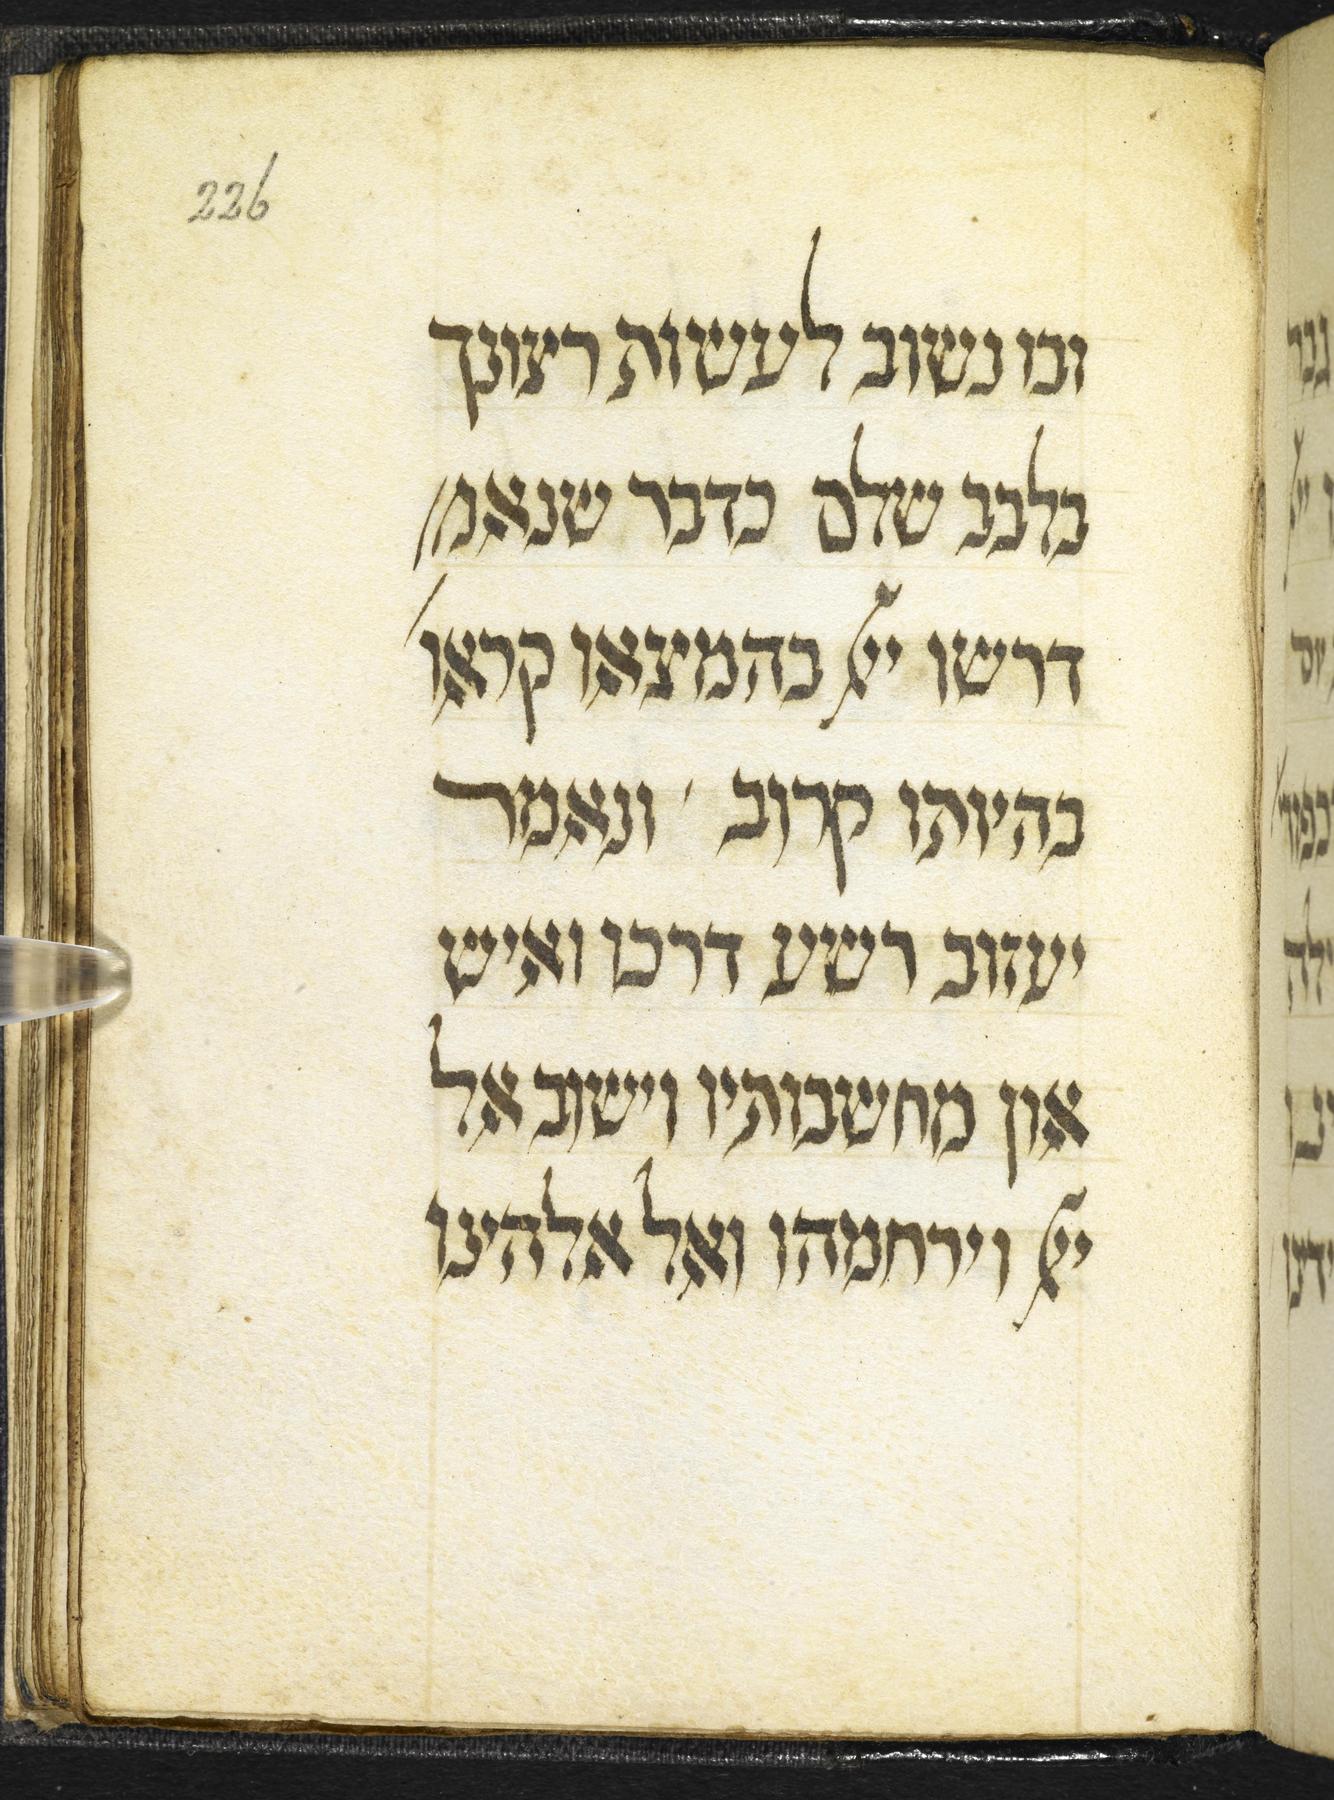 226
ובו נשוב לעשות רצונך
בלבב שלם כדבר שנאמ׳׳
דרשו ייֿ בהמצאו קראו׳
בהיותו קרוב ׳ ונאמר
יעזוב רשע דרכו ואיש
און מחשבותיו וישוב אל
ייֿ וירחמהו ואל אלהינו